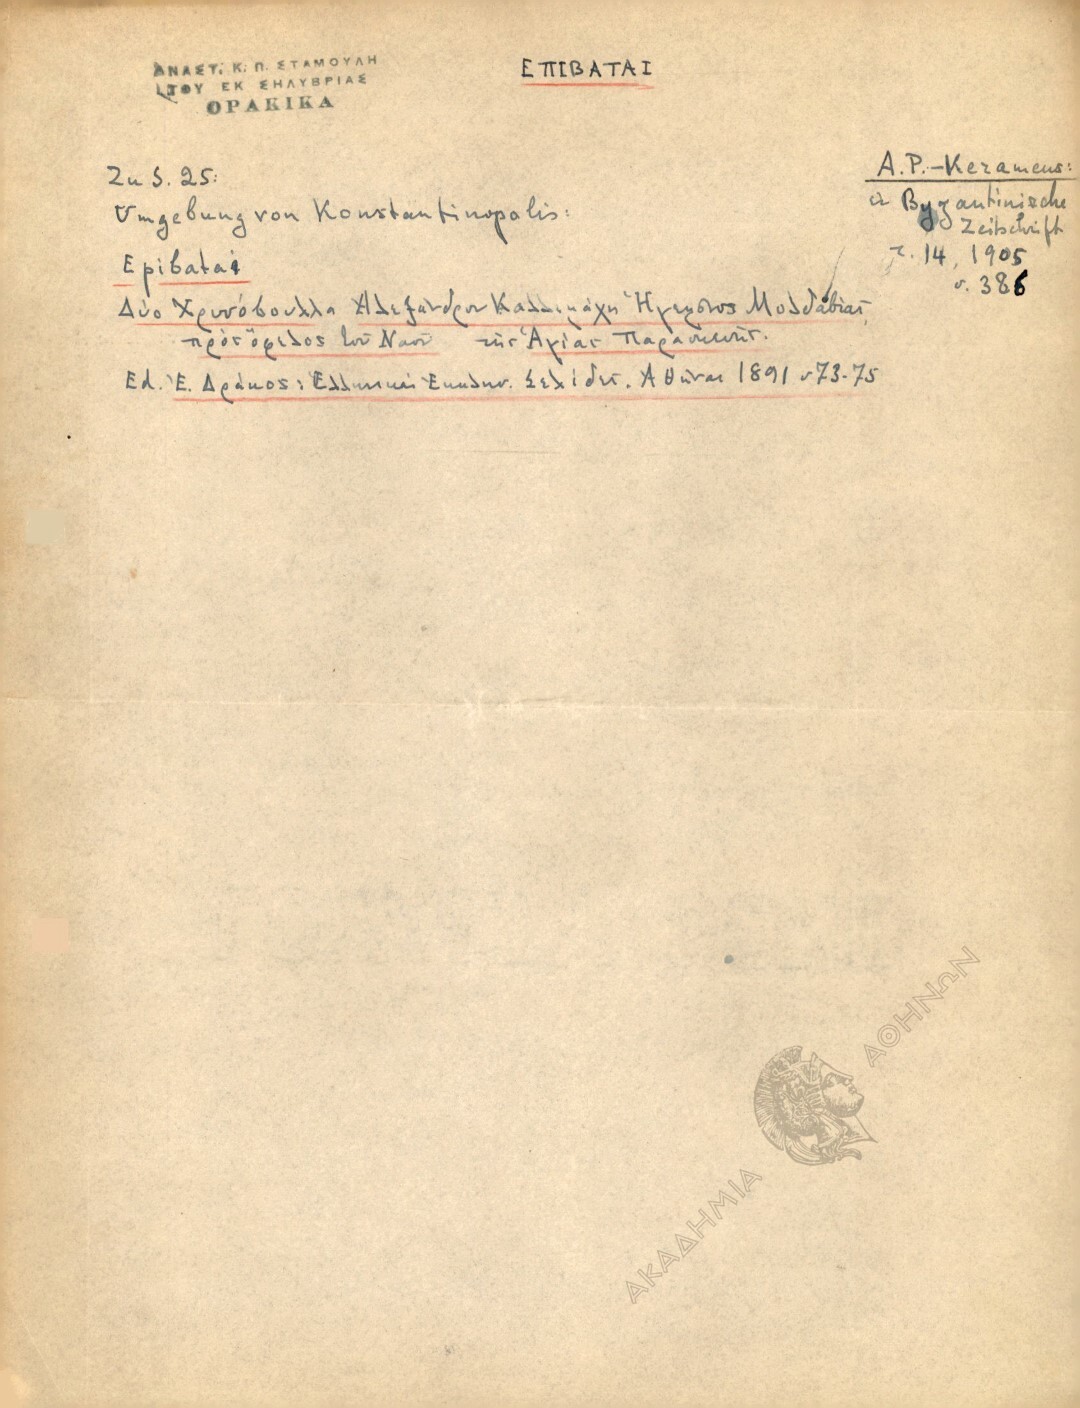 ΑΝΑΣΤ. Κ. Π. ΣΤΑΜΟΥΛΗ
ΤΟΥ ΕΚ ΣΗΛΥΒΡΙΑΣ
ΘΡΑΚΙΚΑ
ΕΠΙΒΑΤΑΙ
A.P.-Kerameus:
Byzantinische
Zeitschrift
τ. 14, 1905
σ. 386
Zu S. 25:
Umgebung von Konstantinopolis:
Epibatai
Δύο Χρυσόβουλλα Αλεξάνδρου Καλλιμάχη Ηγεμόνος Μολδαβίας,
πρὸς ὄφελος τοῦ Ναοῦ τῆς Ἁγίας Παρασκευῆς.
Ed. Ε. Δράκος: Ἑλληνικαὶ Εκκλησ. Σελίδες. Ἀθῆναι 1891 σ 73-75
ΑΚΑΔΗΜΙΑ ΑΘΗΝΩΝ